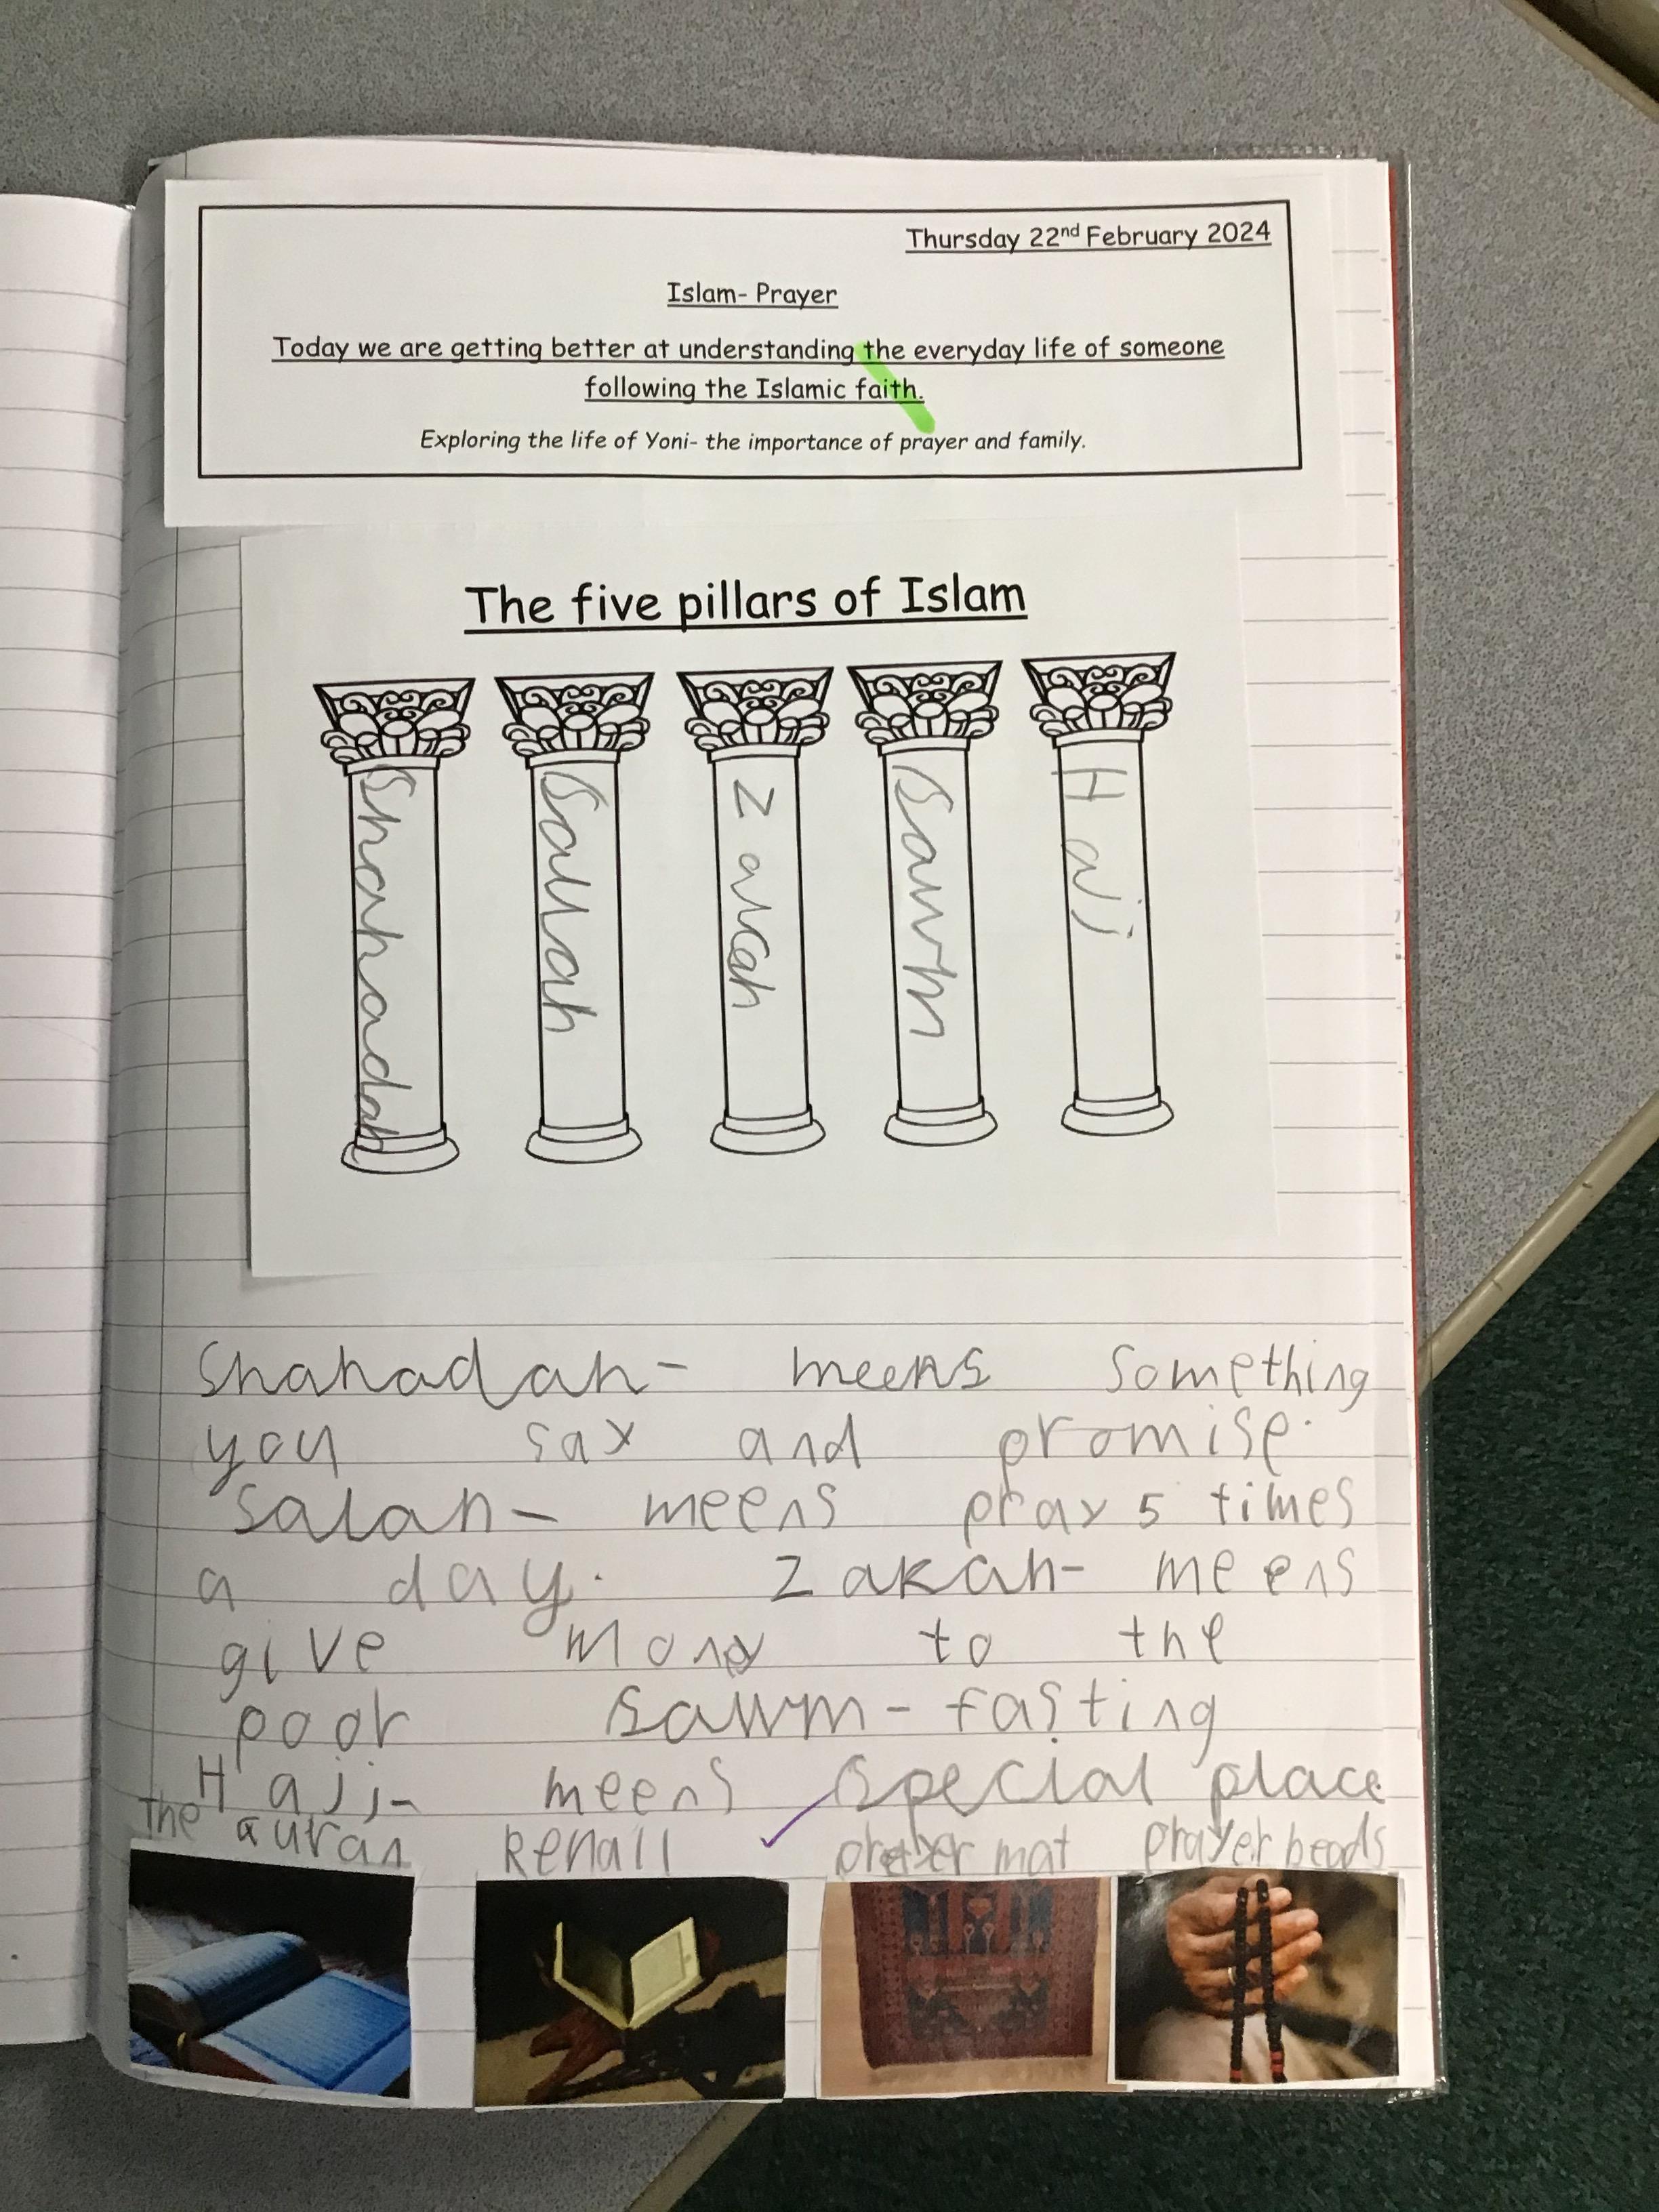 Thursday 22nd February 2024
Islam- Prayer
Today we are getting better at understanding the everyday life of someone
following the Islamic faith.
Exploring the life of Yoni- the importance of prayer and family.
The five pillars of Islam
Shahadah
Sallah
Zakah
Sawm
Hajj
Shahadah- meens Something
you say and promise.
Salah- meens pray 5 times
a day. Zakah- meens
give mony to the
poor Sawm- fasting
Hajj- meens Special place
The Quran Rehall prayer mat prayer beads